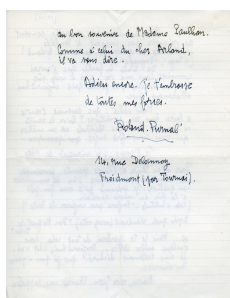 au bon souvenir de Madame Paulhan.
Comme à celui du cher Arland,
il va sans dire.
Adieu encore. Je t'embrasse
de toutes mes forces.
Roland Purnal
14, rue
Froidmont (par Tournai).